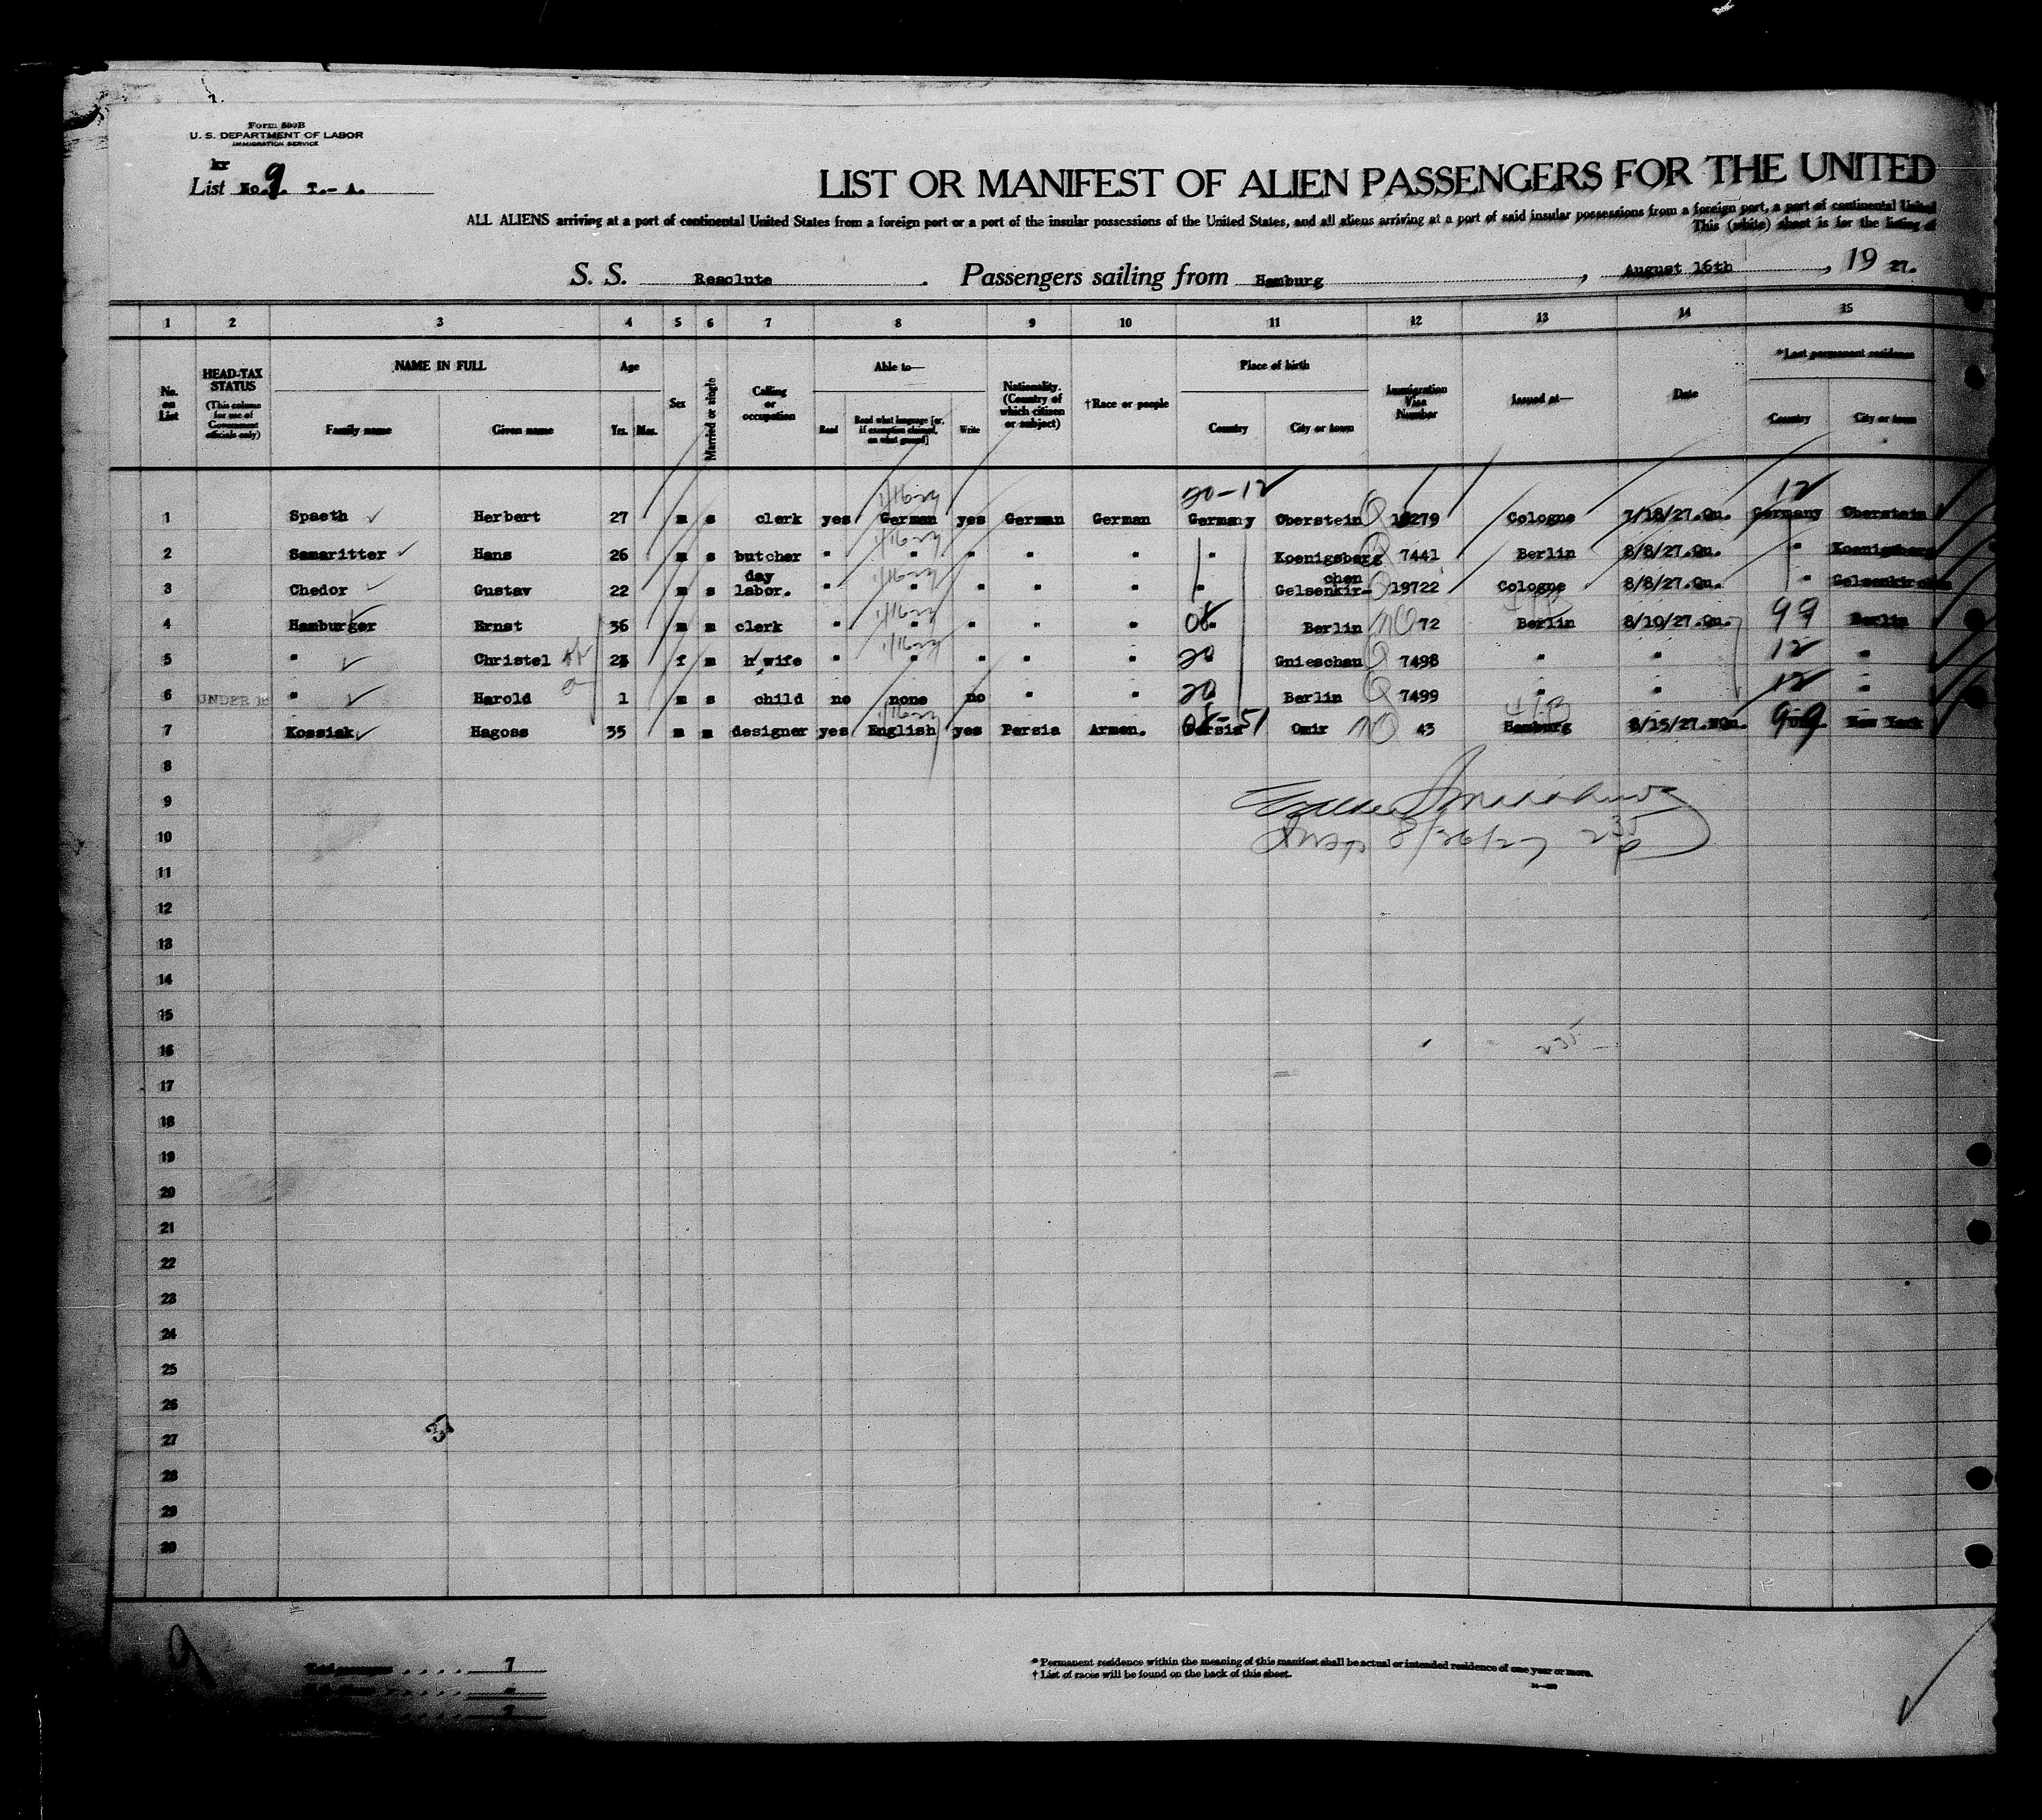 Form 500B
U. S. DEPARTMENT OF LABOR
IMMIGRATION SERVICE
kr
List No. 9 T.- A.
LIST OR MANIFEST OF ALIEN PASSENGERS FOR THE UNITED
ALL ALIENS arriving at a port of continental United States from a foreign port or a port of the insular possessions of the United States, and all aliens arriving at a port of said insular possessions from a foreign port, a port of continental United
This (white) sheet is for the listing of
S. S. Resolute . Passengers sailing from Hamburg , August 16th , 19 27.
1 2 3 4 5 6 7 8 9 10 11 12 13 14 15
No. on List
HEAD-TAX STATUS (This column for use of Government officials only)
NAME IN FULL Family name Given name
Age Yrs. Mos.
Sex
Married or single
Calling or occupation
Able to— Read Read what language [or, if exemption claimed, on what ground] Write
Nationality. (Country of which citizen or subject)
†Race or people
Place of birth Country City or town
Immigration Visa Number
Issued at—
Date
*Last permanent residence Country City or town
20-12 12
1 Spaeth Herbert 27 m s clerk yes German yes German German Germany Oberstein Q 18279 Cologne 7/18/27.Qu. Germany Oberstein
2 Samaritter Hans 26 m s butcher " " " " " " Koenigsberg Q 7441 Berlin 8/8/27.Qu. " Koenigsberg
3 Chedor Gustav 22 m s day labor. " " " " " " Gelsenkirchen Q 19722 Cologne 8/8/27.Qu. " Gelsenkirchen
4 Hamburger Ernst 36 m m clerk " " " " " " Berlin NQ 72 Berlin 8/10/27.Qu. 99 Berlin
5 " Christel 23 f m h'wife " " " " " 20 Gnieschau Q 7498 " " 12 "
6 UNDER 16 " Harold 1 m s child no none no " " 20 Berlin Q 7499 " " 12 "
7 Kossiak Hagoss 35 m m designer yes English yes Persia Armen. Persia Omir NQ 43 Hamburg 8/15/27.NQu. 99 New York
8
9
10 8/26/27 2 35 p
11
12
13
14
15
16 235
17
18
19
20
21
22
23
24
25
26
27
28
29
30
9
Total passengers 7
* Permanent residence within the meaning of this manifest shall be actual or intended residence of one year or more.
† List of races will be found on the back of this sheet.